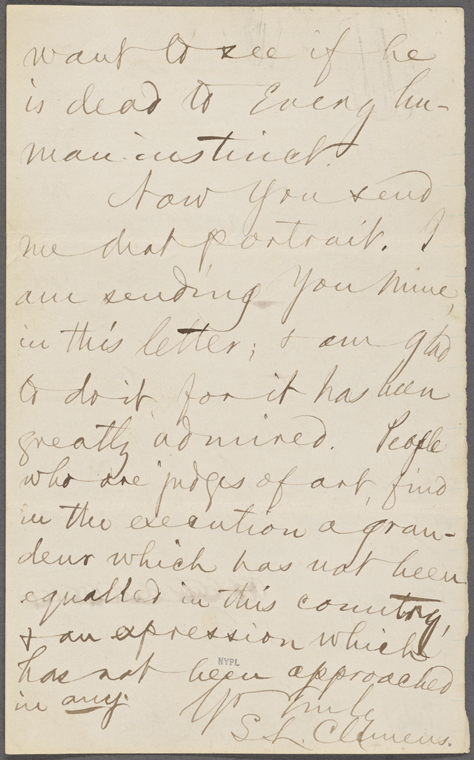 want to see if he
is dead to every hu-
man instinct.
Now you send
me that portrait. I
am sending you mine,
in this letter; & am glad
to do it, for it has been
greatly admired. People
who are judges of art, find
in the execution a gran-
deur which has not been
equalled in this country,
& an expression which
has not been approached
in any.
NYPL
Yrs truly
S. L. Clemens.